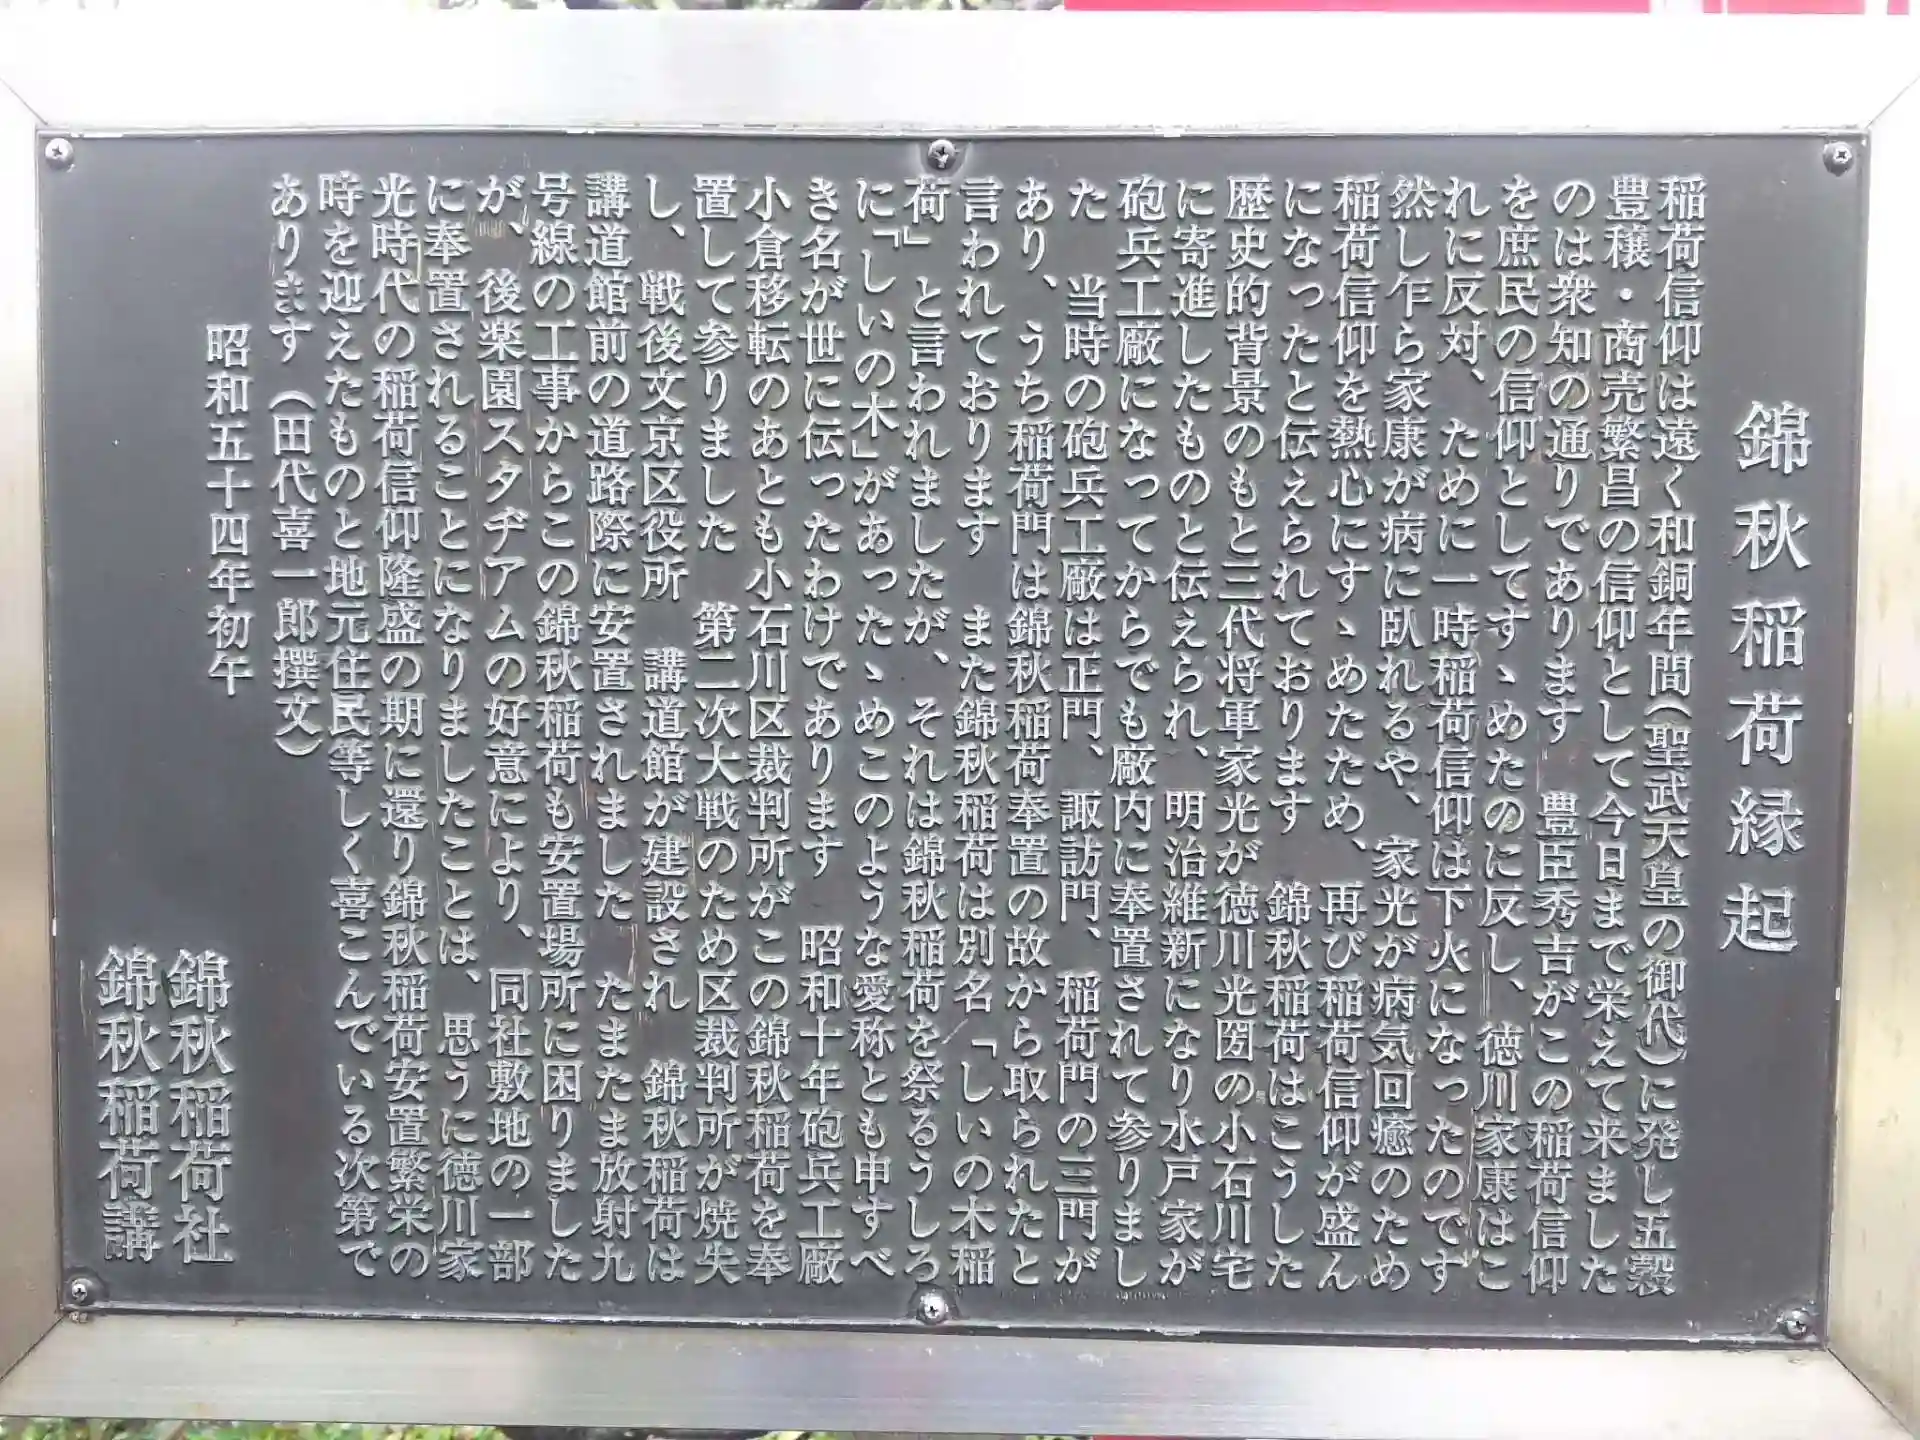 錦秋稲荷縁起
稲荷信仰は遠く和銅年間(聖武天皇の御代)に発し五穀
豊穣・商売繁昌の信仰として今日まで栄えて来ました
のは衆知の通りであります　豊臣秀吉がこの稲荷信仰
を庶民の信仰としてすゝめたのに反し、徳川家康はこ
れに反対、ために一時稲荷信仰は下火になったのです
然し乍ら家康が病に臥れるや、家光が病気回癒のため
稲荷信仰を熱心にすゝめたため、再び稲荷信仰が盛ん
になったと伝えられております　錦秋稲荷はこうした
歴史的背景のもと三代将軍家光が徳川光圀の小石川宅
に寄進したものと伝えられ、明治維新になり水戸家が
砲兵工廠になってからでも廠内に奉置されて参りまし
た　当時の砲兵工廠は正門、諏訪門、稲荷門の三門が
あり、うち稲荷門は錦秋稲荷奉置の故から取られたと
言われております　また錦秋稲荷は別名「しいの木稲
荷」と言われましたが、それは錦秋稲荷を祭るうしろ
に「しいの木」があったゝめこのような愛称とも申すべ
き名が世に伝ったわけであります　昭和十年砲兵工廠
小倉移転のあとも小石川区裁判所がこの錦秋稲荷を奉
置して参りました　第二次大戦のため区裁判所が焼失
し、戦後文京区役所　講道館が建設され　錦秋稲荷は
講道館前の道路際に安置されました　たまたま放射九
号線の工事からこの錦秋稲荷も安置場所に困りました
が、後楽園スタヂアムの好意により、同社敷地の一部
に奉置されることになりましたことは、思うに徳川家
光時代の稲荷信仰隆盛の期に還り錦秋稲荷安置繁栄の
時を迎えたものと地元住民等しく喜こんでいる次第で
あります（田代喜一郎撰文）
昭和五十四年初午
錦秋稲荷社
錦秋稲荷講